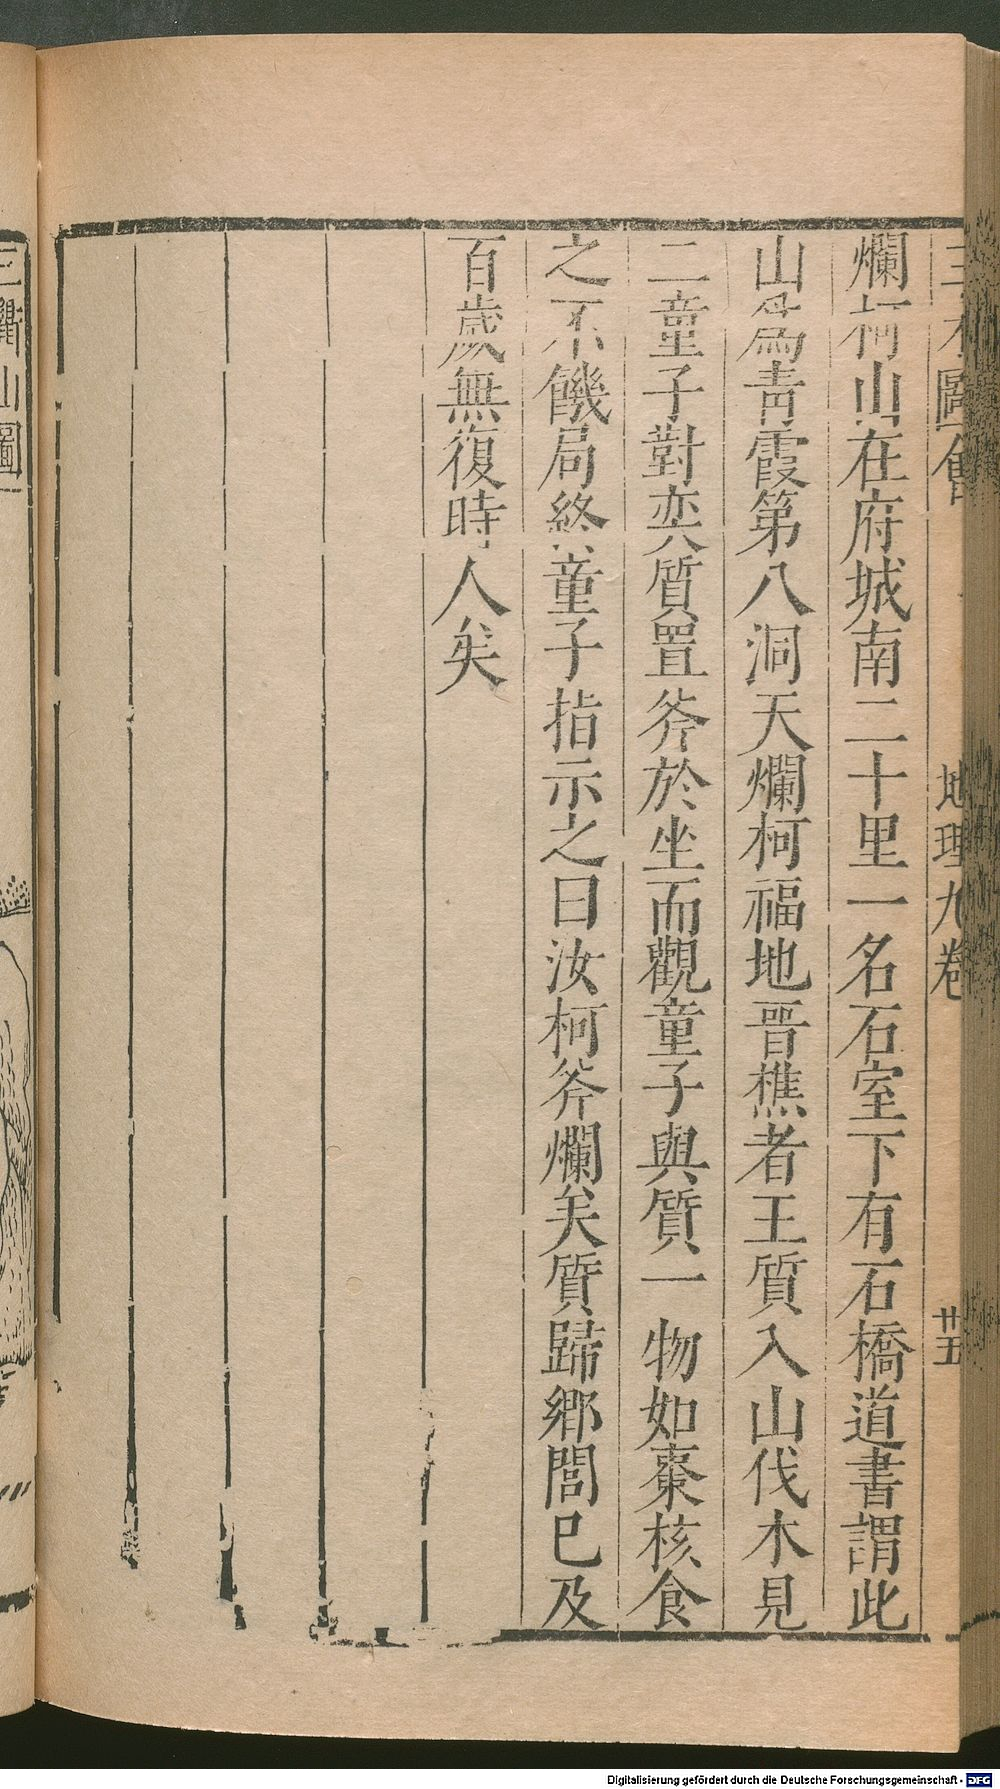 三才圖會 地理九卷 廿五
爛柯山在府城南二十里一名石室下有石橋道書謂此
山爲青霞第八洞天爛柯福地晉樵者王質入山伐木見
二童子對奕質置斧於坐而觀童子與質一物如棗核食
之不饑局終童子指示之曰汝柯斧爛矣質歸鄉閭已及
百歲無復時人矣
三衢山圖
Digitalisierung gefördert durch die Deutsche Forschungsgemeinschaft - DFG